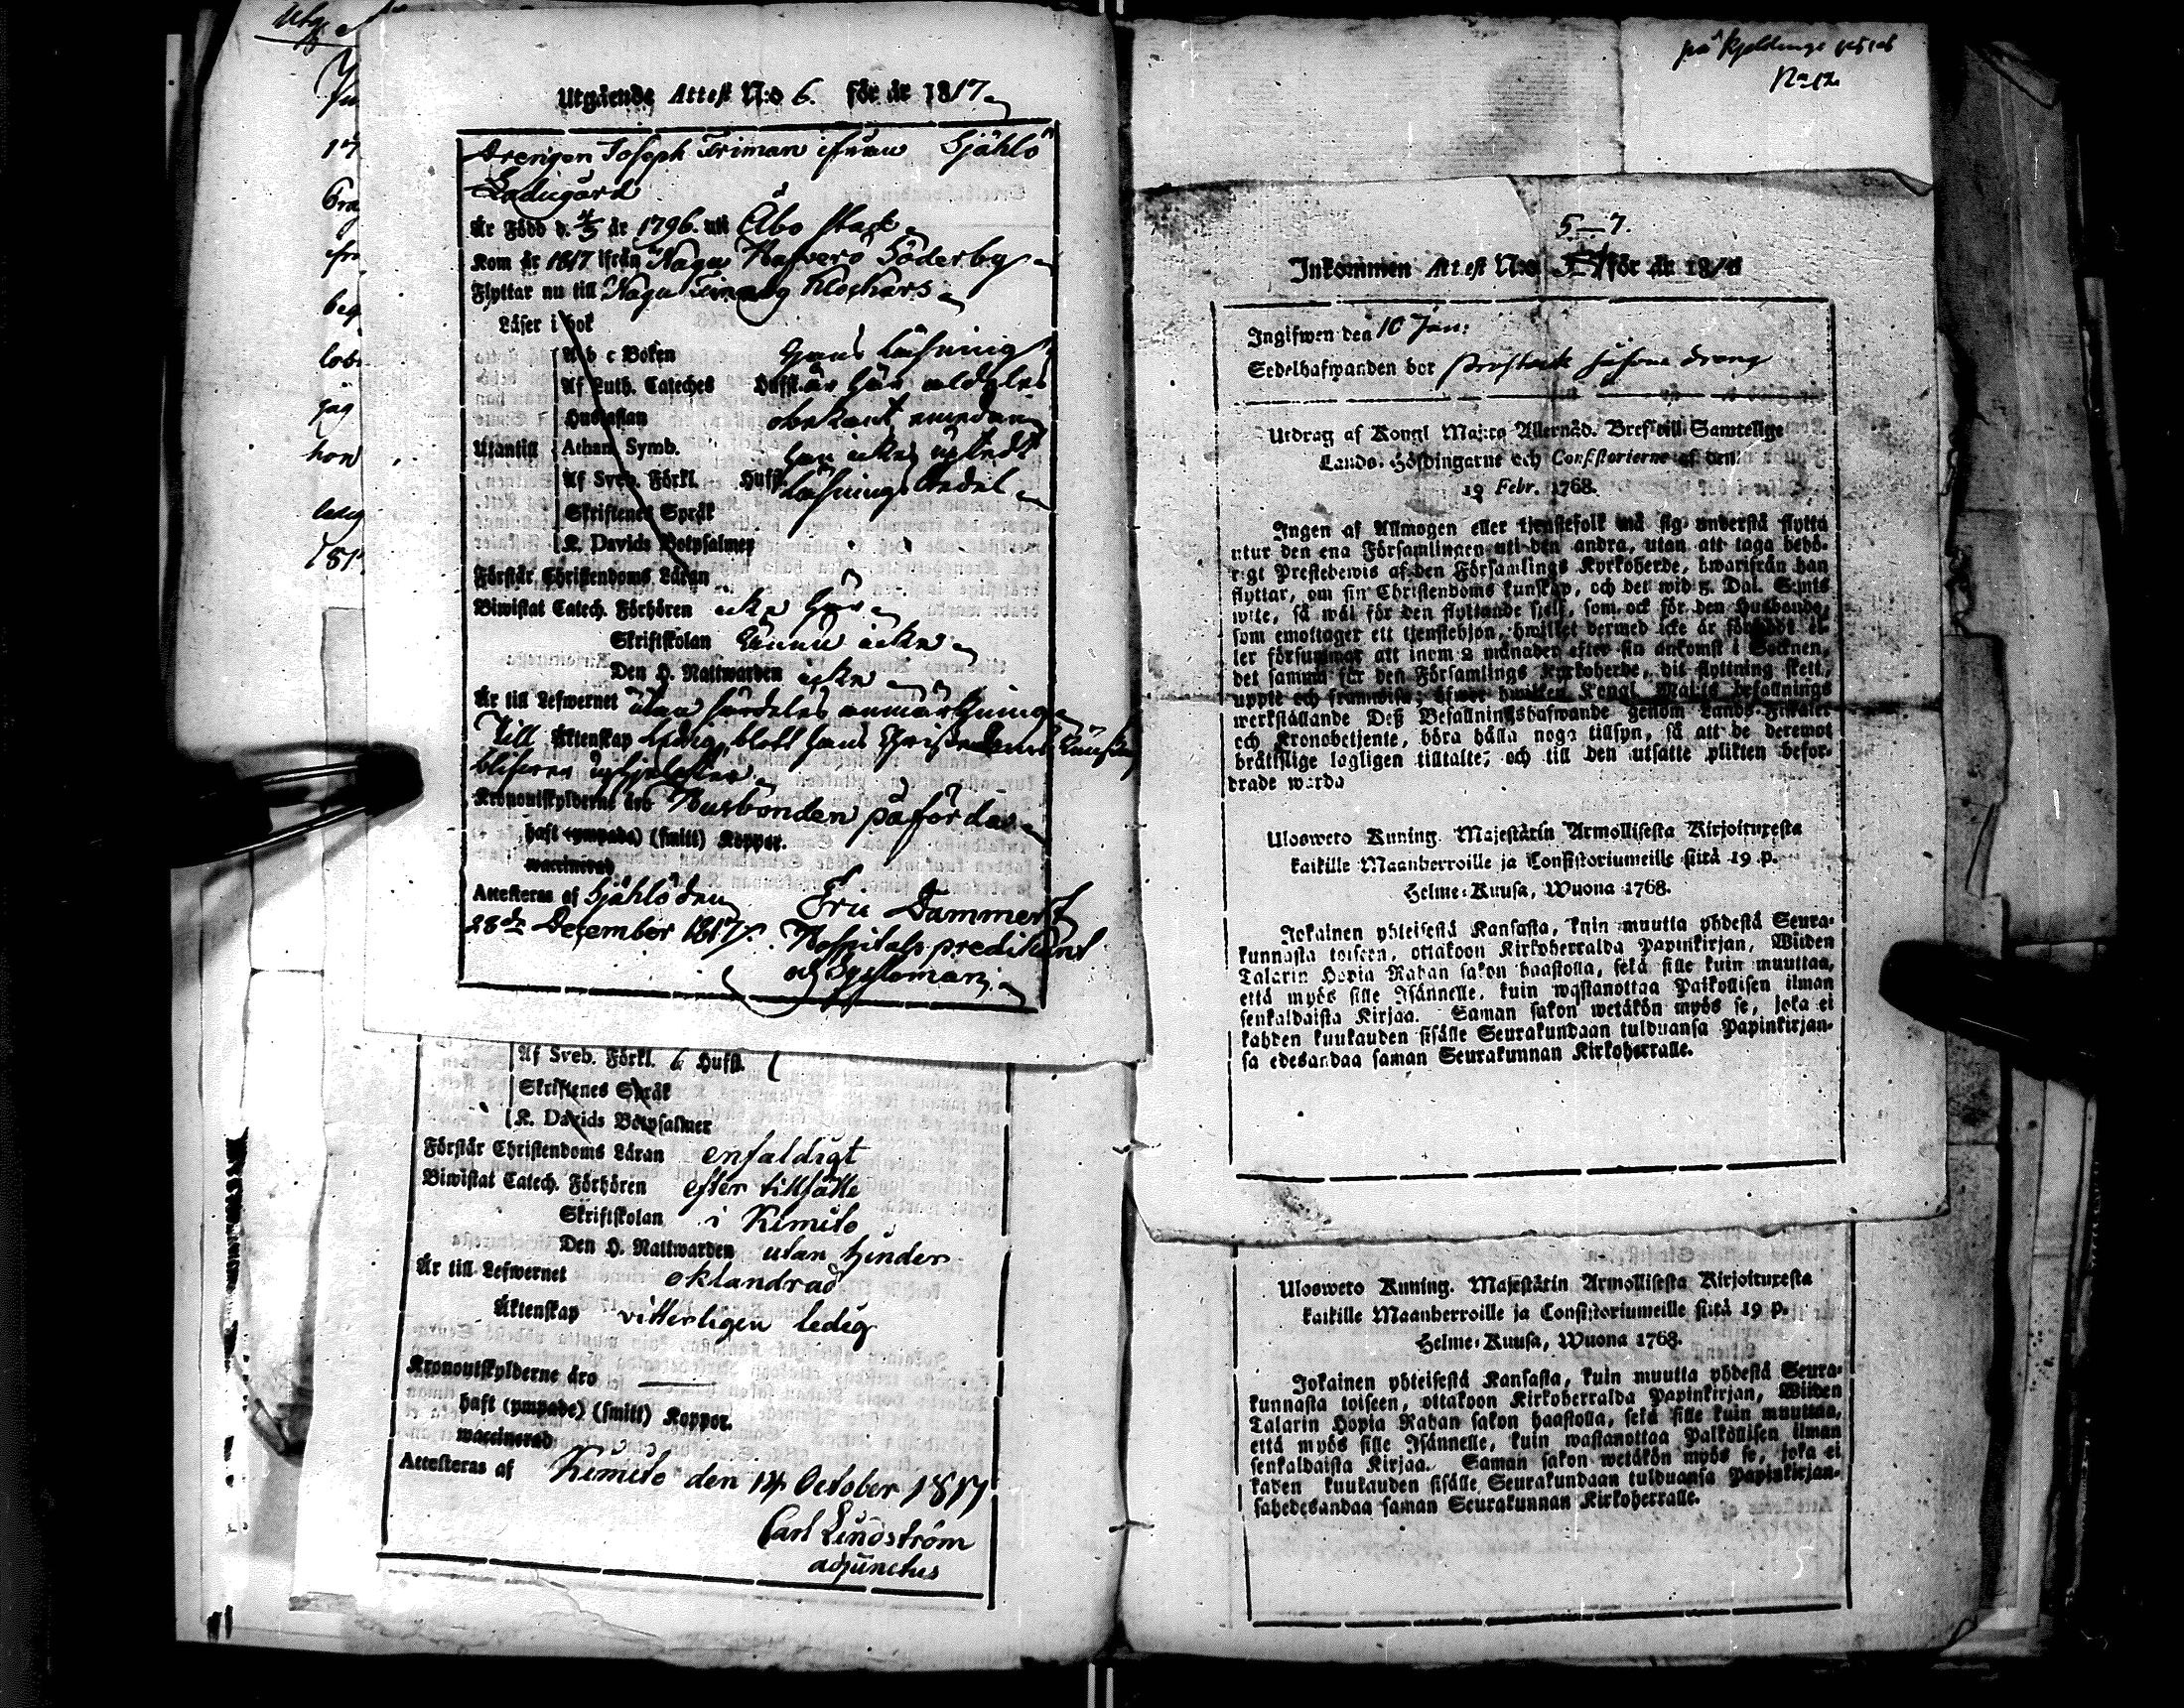 Utgående Attest N:o 6. för år 1817
Drengen Joseph Friman ifrån Sjählö
Ladugård
Är Född d. 4/5 år 1796. uti Åbo stad
Kom år 1817 ifrån Nagu Hafverö Söderby
Flyttar nu till Nagu Finnby Klockars
Läser i bok
A b c Boken Hans läsning
Af Luth. Cateches Hufst. är här aldeles
Hustaflan obekant emedan
Utantill Athan. Symb. han icke
Af Sveb. Förkl. Hufst. Läsnings Sedel
Skriftenes Språk
K. Davids Botpsalmer
Förstår Christendoms Läran
Biwistat Catech. Förhören icke här
Skriftskolan ännu icke
Den H. Nattwarden icke
Är till Lefwernet utan särdeles anmärkning
Till Äktenskap ledig, blott hans Christendoms kunskap
blifver
Kronoutskylderne äro Husbonden påförda
haft (ympade) (smitt) Koppor.
waccinerad
Attesteras af Sjählö den
28de December 1817. Hospitals predikant
och Sysloman
Af Sveb. Förkl. 6 Hufst.
Skriftenes Språk
K. Davids Botpsalmer
Förstår Christendoms Läran enfaldigt
Biwistat Catech. Förhören efter tillfälle
Skriftskolan i Kimito
Den H. Nattwarden utan hinder
Är till Lefwernet oklandrad
Äktenskap vitterligen ledig
Kronoutskylderne äro
haft (ympade) (smitt) Koppor.
waccinerad
Attesteras af Kimito den 14 October 1817
Carl Lindström
adjunctus
No 12
5-7.
Inkommen Attest N:o för år 18
Ingifwen den 10 Jan:
Sedelhafwanden bor
Utdrag af Kongl Maj:ts Allernåd. Bref till Samtelige
Lands-Höfdingarne och Consistorierne af den
19 Febr. 1768.
Ingen af Allmogen eller tjenstefolk må sig understå flytta
utur den ena Församlingen uti den andra, utan att taga behö-
rigt Prestebewis af den Församlings Kyrkoherde, hwarifrån han
flyttar, om sin Christendoms kunskap, och det wid 5. Dal. S:mts
wite, så wäl för den flyttande sielf, som ock för den Husbonde,
som emottager ett tjenstehjon, hwilket dermed icke är försedt el-
ler försummar att inom 2 månader efter sin ankomst i Socknen,
det samma för den Församlings Kyrkoherde, dit flyttning skett,
uppte och framwisa; öfwer hwilken Kongl. Maj:ts befallnings
werkställande Deß Befallningshafwande genom Lands-Fiskaler
och Kronobetjente, böra hålla noga tillsyn, så att de deremot
bråtslige lagligen tilltalte, och till den utsatte plikten befor-
drade warda
Ulosweto Kuning. Majestätin Armollisesta Kirjoituxesta
kaikille Maanherroille ja Consistoriumeille siitä 19 p.
Helme-Kuusa, Wuona 1768.
Jokainen yhteisestä Kansasta, kuin muutta yhdestä Seura-
kunnasta toiseen, ottakoon Kirkoherralda Papinkirjan, Wiiden
Talarin Hopia Rahan sakon haastolla, sekä sille kuin muuttaa,
että myös sille Isännelle, kuin wastanottaa Palkollisen ilman
senkaldaista Kirjaa. Saman sakon wetäkön myös se, joka ei
kahden kuukauden sisälle Seurakundaan tulduansa Papinkirjan-
sa edesandaa saman Seurakunnan Kirkoherralle.
Ulosweto Kuning. Majestätin Armollisesta Kirjoituxesta
kaikille Maanherroille ja Consistoriumeille siitä 19 p.
Helme-Kuusa, Wuona 1768.
Jokainen yhteisestä Kansasta, kuin muutta yhdestä Seura-
kunnasta toiseen, ottakoon Kirkoherralda Papinkirjan, Wiiden
Talarin Hopia Rahan sakon haastolla, sekä sille kuin muuttaa,
että myös sille Isännelle, kuin wastanottaa Palkollisen ilman
senkaldaista Kirjaa. Saman sakon wetäkön myös se, joka ei
kaden kuukauden sisälle Seurakundaan tulduansa Papinkirjan-
sahedesandaa saman Seurakunnan Kirkoherralle.